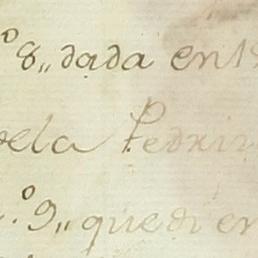 º 8,, dada en 1
ela Pedri
.º 9,, que di en